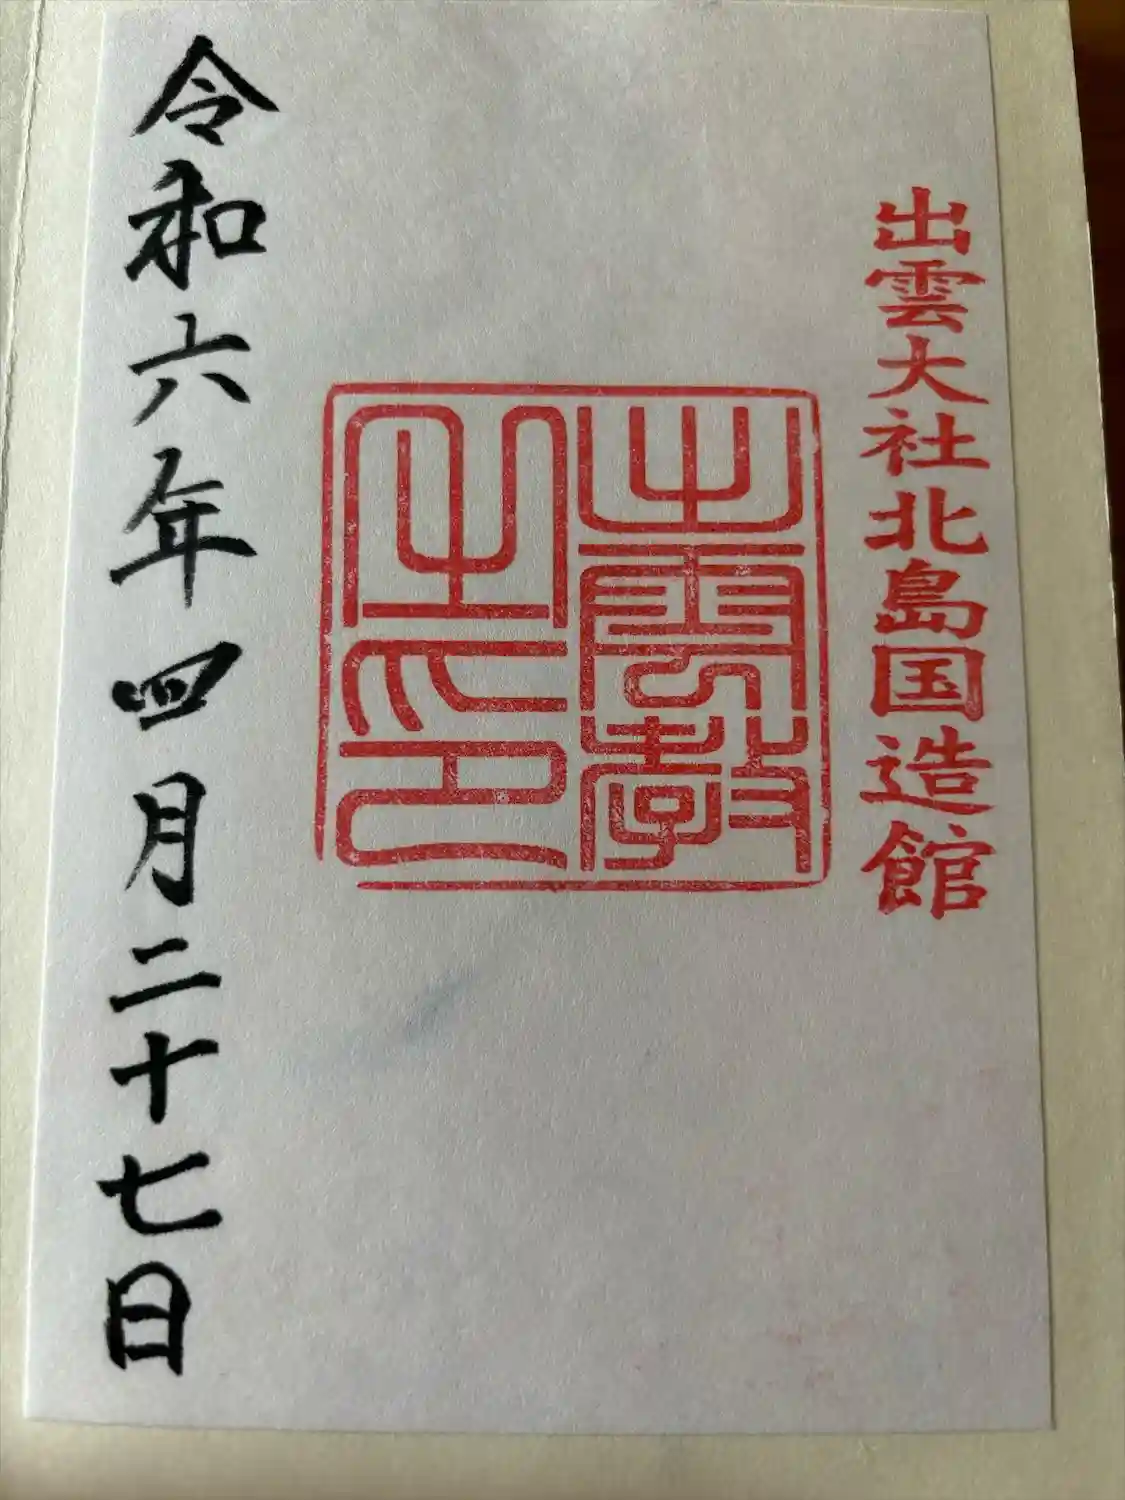 出雲大社北島国造館
出雲教
之印
令和六年四月二十七日